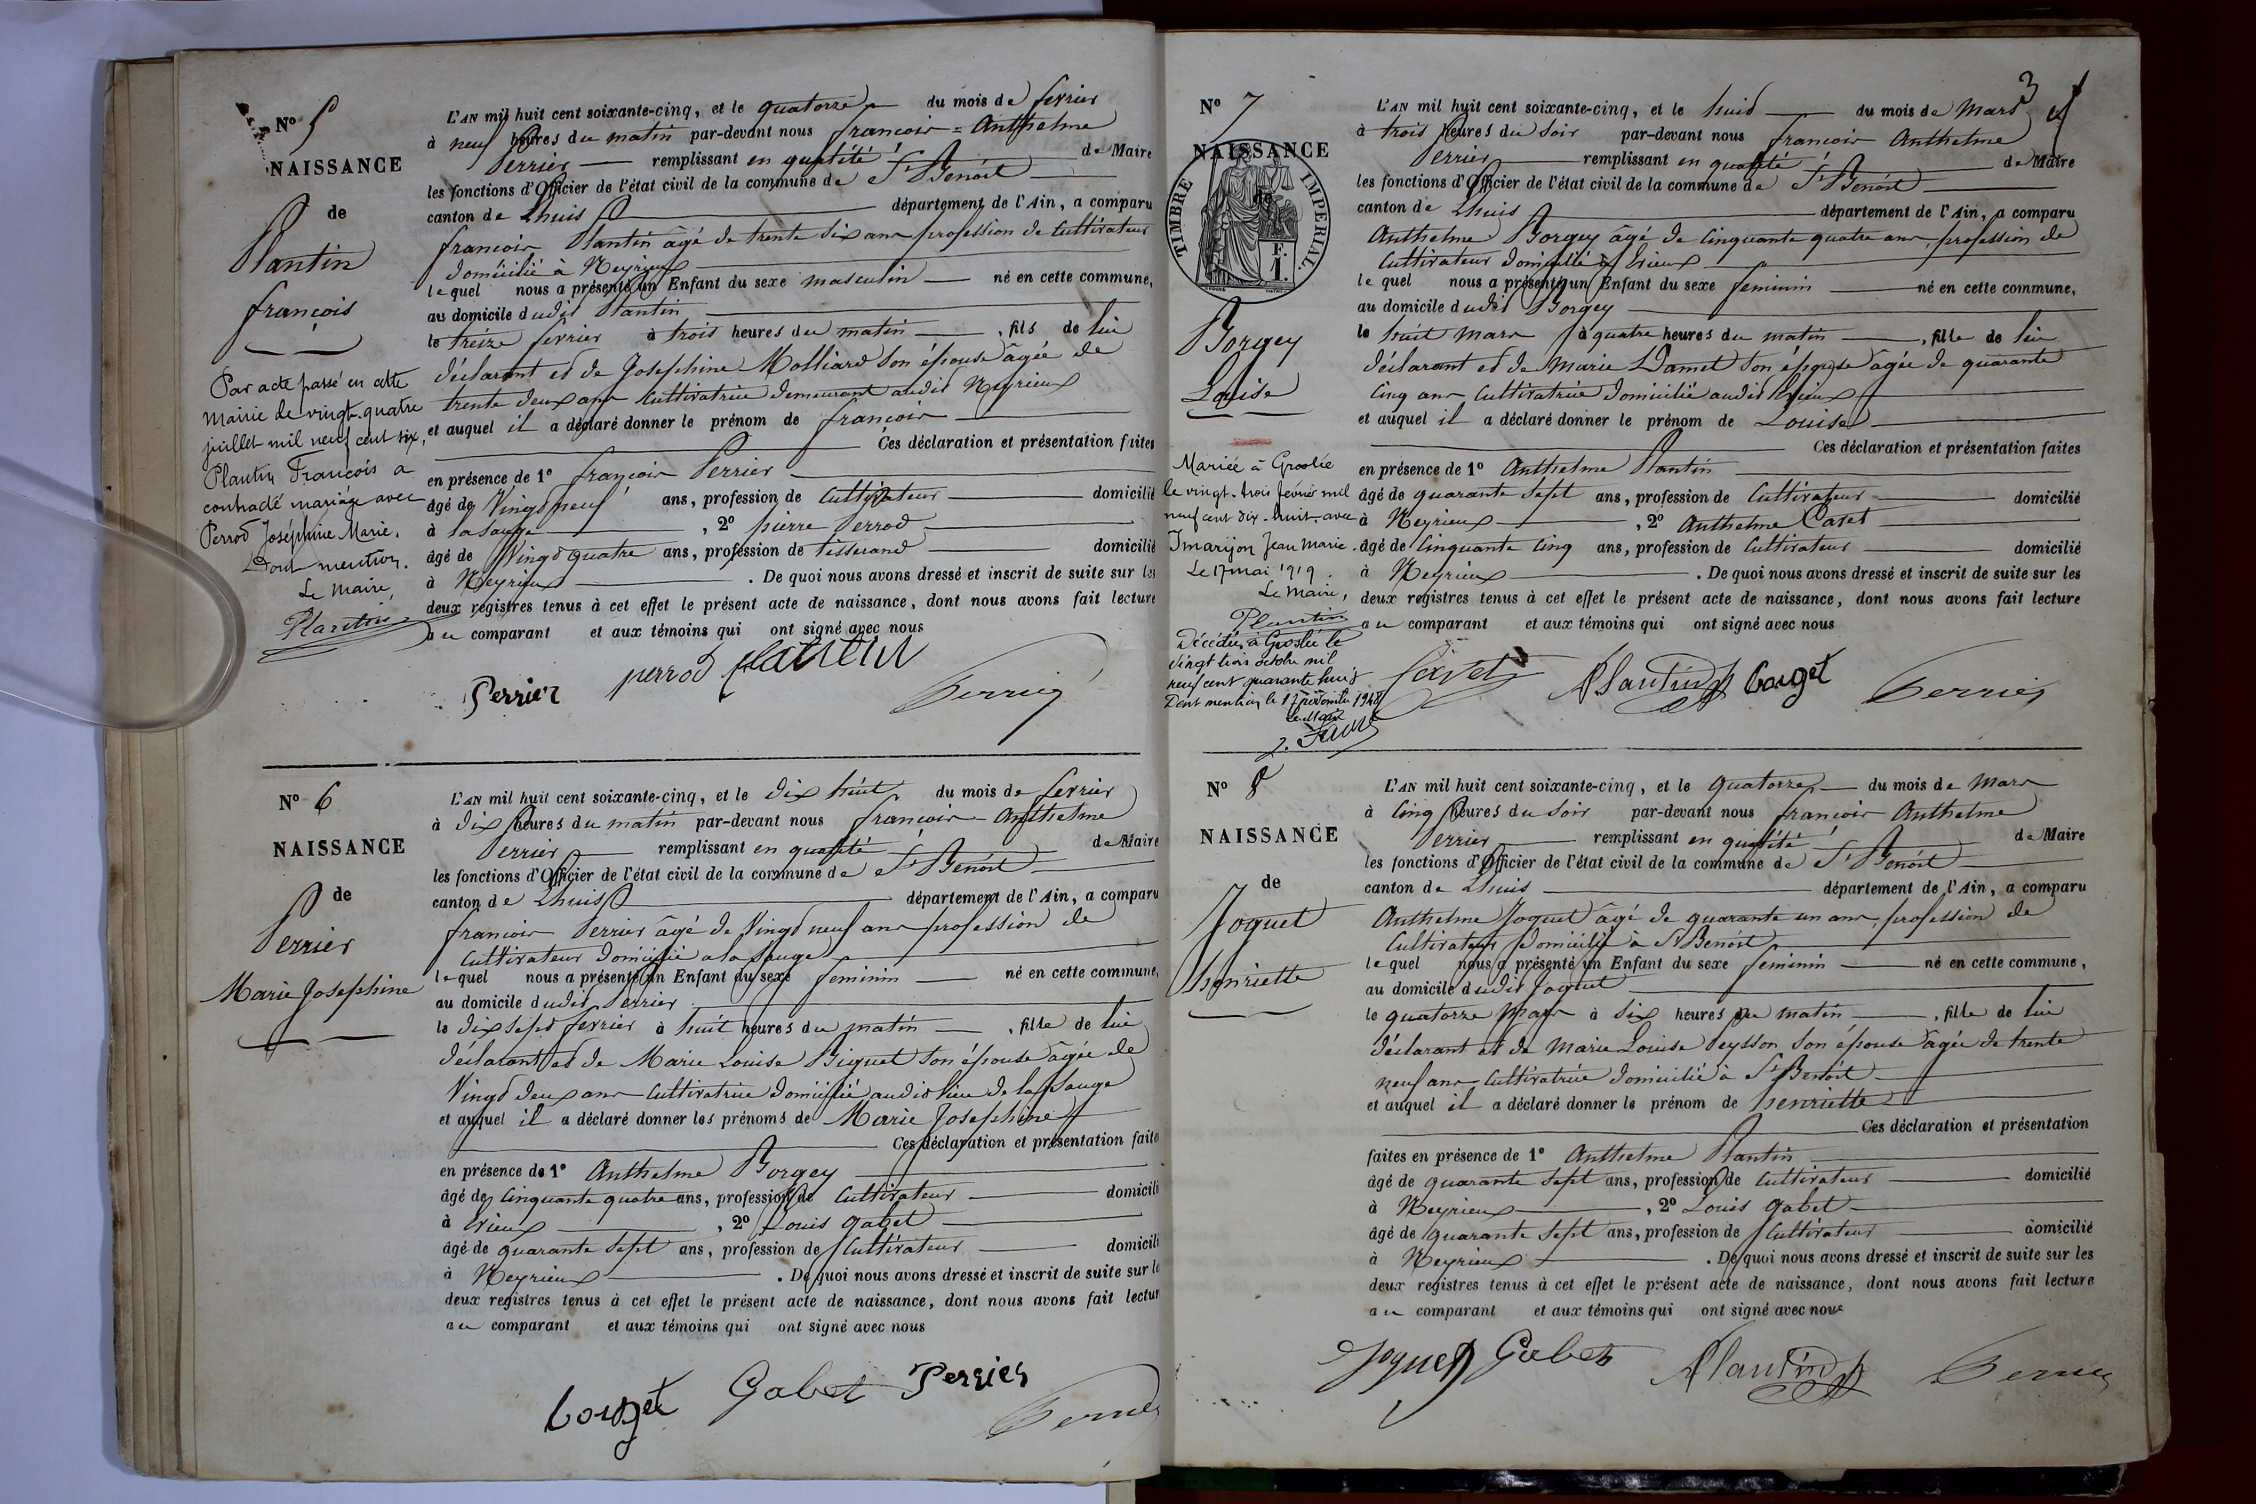 N° 5
NAISSANCE
de
Plantin
françois
Par acte passé en cette
Mairie de vingt-quatre
juillet mil neuf cent six,
Plantin François a
contracté mariage avec
Perrod Joséphine Marie.
Dont mention.
Le Maire,
Plantin
L'AN mil huit cent soixante-cinq, et le quatorze du mois de fevrier
à neuf heures du matin par-devant nous francois = Anthelme
Perrier remplissant en qualité de Maire
les fonctions d'Officier de l'état civil de la commune de St Benoit
canton de Lhuis département de l'Ain, a comparu
francois Plantin âgé de trente six ans profession de Cultivateur
domicilié à Neyrieux
lequel nous a présenté un Enfant du sexe masculin né en cette commune,
au domicile dudit Plantin
le treize fevrier à trois heures du matin , fils de lui
déclarant et de Josephine Molliard son épouse âgée de
trente deux ans Cultivatrice demeurant audit Neyrieux
et auquel il a déclaré donner le prénom de francois
Ces déclaration et présentation faites
en présence de 1° françois Perrier
âgé de Vingt neuf ans, profession de Cultivateur domicilié
à la Sauge , 2° pierre Perrod
âgé de Vingt quatre ans, profession de tisserand domicilié
à Neyrieux . De quoi nous avons dressé et inscrit de suite sur les
deux registres tenus à cet effet le présent acte de naissance, dont nous avons fait lecture
au comparant et aux témoins qui ont signé avec nous
Perrier perrod plantin Perrier
N° 6
NAISSANCE
de
Perrier
Marie Josephine
L'AN mil huit cent soixante-cinq, et le dix huit du mois de fevrier
à dix heures du matin par-devant nous francois - Anthelme
Perrier remplissant en qualité de Maire
les fonctions d'Officier de l'état civil de la commune de St Benoit
canton de Lhuis département de l'Ain, a comparu
francois Perrier âgé de Vingt neuf ans profession de
Cultivateur domicilié a la Sauge
lequel nous a présenté un Enfant du sexe feminin né en cette commune,
au domicile dudit Perrier
le dix sept fevrier à huit heures du matin , fille de lui
déclarant et de Marie Louise Biguet son épouse âgée de
Vingt deux ans Cultivatrice domicilié audit lieu de la Sauge
et auquel il a déclaré donner les prénoms de Marie Josephine
Ces déclaration et présentation faites
en présence de 1° Anthelme Borgey
âgé de Cinquante quatre ans, profession de Cultivateur domicilié
à Crieux , 2° Louis Gabet
âgé de quarante sept ans, profession de Cultivateur domicilié
à Neyrieux . De quoi nous avons dressé et inscrit de suite sur les
deux registres tenus à cet effet le présent acte de naissance, dont nous avons fait lecture
au comparant et aux témoins qui ont signé avec nous
borget Gabet Perrier Perrier
3
N° 7
NAISSANCE
de
TIMBRE IMPERIAL.
F.
1.
Borgey
Louise
Mariée à Groslée
le vingt-trois février mil
neuf cent dix-huit avec
Imarijon Jean Marie.
Le 17 mai 1919.
Le Maire,
Plantin
Décédée à Groslée le
vingt trois octobre mil
neuf cent quarante huit
Dont mention le 17 novembre 1948
Le Maire
L'AN mil huit cent soixante-cinq, et le huit du mois de Mars
à trois heures du Soir par-devant nous francois Anthelme
Perrier remplissant en qualité de Maire
les fonctions d'Officier de l'état civil de la commune de St Benoit
canton de Lhuis département de l'Ain, a comparu
Anthelme Borgey âgé de Cinquante quatre ans, profession de
Cultivateur domicilié à Crieux
lequel nous a présenté un Enfant du sexe feminin né en cette commune,
au domicile dudit Borgey
le huit mars à quatre heures du matin , fille de lui
déclarant et de Marie Damet son épouse âgée de quarante
Cinq ans Cultivatrice domicilié audit Crieux
et auquel il a déclaré donner le prénom de Louise
Ces déclaration et présentation faites
en présence de 1° Anthelme Plantin
âgé de quarante sept ans, profession de Cultivateur domicilié
à Neyrieux , 2° Anthelme Cavet
âgé de Cinquante Cinq ans, profession de Cultivateur domicilié
à Neyrieux . De quoi nous avons dressé et inscrit de suite sur les
deux registres tenus à cet effet le présent acte de naissance, dont nous avons fait lecture
au comparant et aux témoins qui ont signé avec nous
Cavet Plantin borget Perrier
N° 8
NAISSANCE
de
Joguet
henriette
L'AN mil huit cent soixante-cinq, et le quatorze du mois de Mars
à Cinq heures du Soir par-devant nous francois Anthelme
Perrier remplissant en qualité de Maire
les fonctions d'Officier de l'état civil de la commune de St Benoit
canton de Lhuis département de l'Ain, a comparu
Anthelme Joguet âgé de quarante un ans, profession de
Cultivateur domicilié à St Benoit
lequel nous a présenté un Enfant du sexe feminin né en cette commune,
au domicile dudit Joguet
le quatorze Mars à Six heures du matin , fille de lui
déclarant et de Marie Louise Peysson son épouse âgée de trente
neuf ans Cultivatrice domicilié à St Benoit
et auquel il a déclaré donner le prénom de henriette
Ces déclaration et présentation
faites en présence de 1° Anthelme Plantin
âgé de quarante sept ans, profession de Cultivateur domicilié
à Neyrieux , 2° Louis Gabet
âgé de quarante sept ans, profession de Cultivateur domicilié
à Neyrieux . De quoi nous avons dressé et inscrit de suite sur les
deux registres tenus à cet effet le présent acte de naissance, dont nous avons fait lecture
au comparant et aux témoins qui ont signé avec nous
Joguet Gabet Plantin Perrier